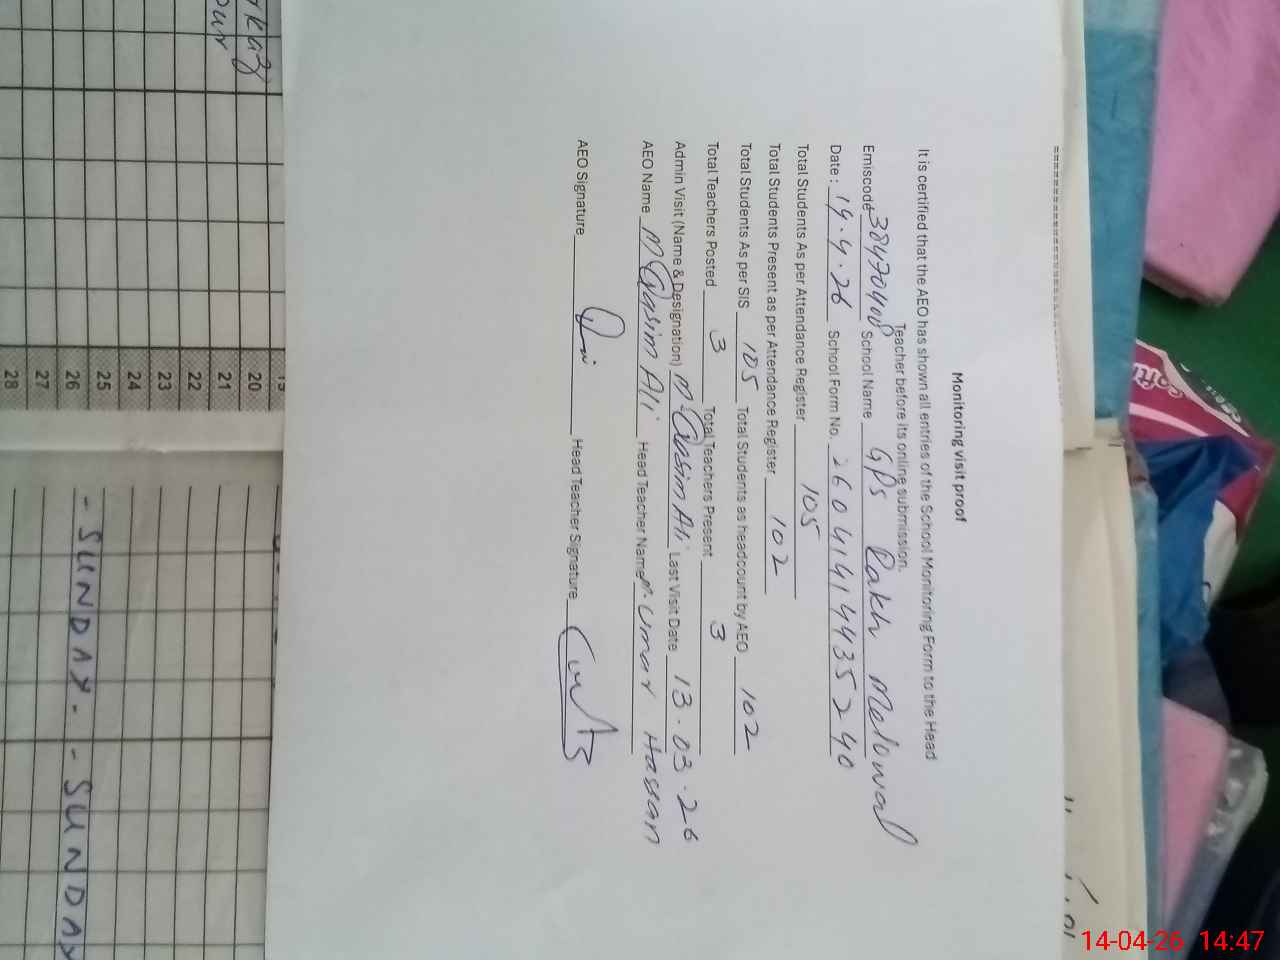 Monitoring visit proof
It is certified that the AEO has shown all entries of the School Monitoring Form to the Head
Teacher before its online submission.
Emiscode 38470408 School Name GPS Rakh Melowal
Date: 14.4.26 School Form No. 26041414435240
Total Students As per Attendance Register 105
Total Students Present as per Attendance Register 102
Total Students As per SIS 105 Total Students as headcount by AEO 102
Total Teachers Posted 3 Total Teachers Present 3
Admin Visit (Name & Designation) M. Qasim Ali Last Visit Date 13.03.26
AEO Name M Qasim Ali Head Teacher Name M. Umar Hassan
AEO Signature Head Teacher Signature
20
21
22
23
24
25
26 - SUNDAY - - SUNDAY
27
28
14-04-26 14:47